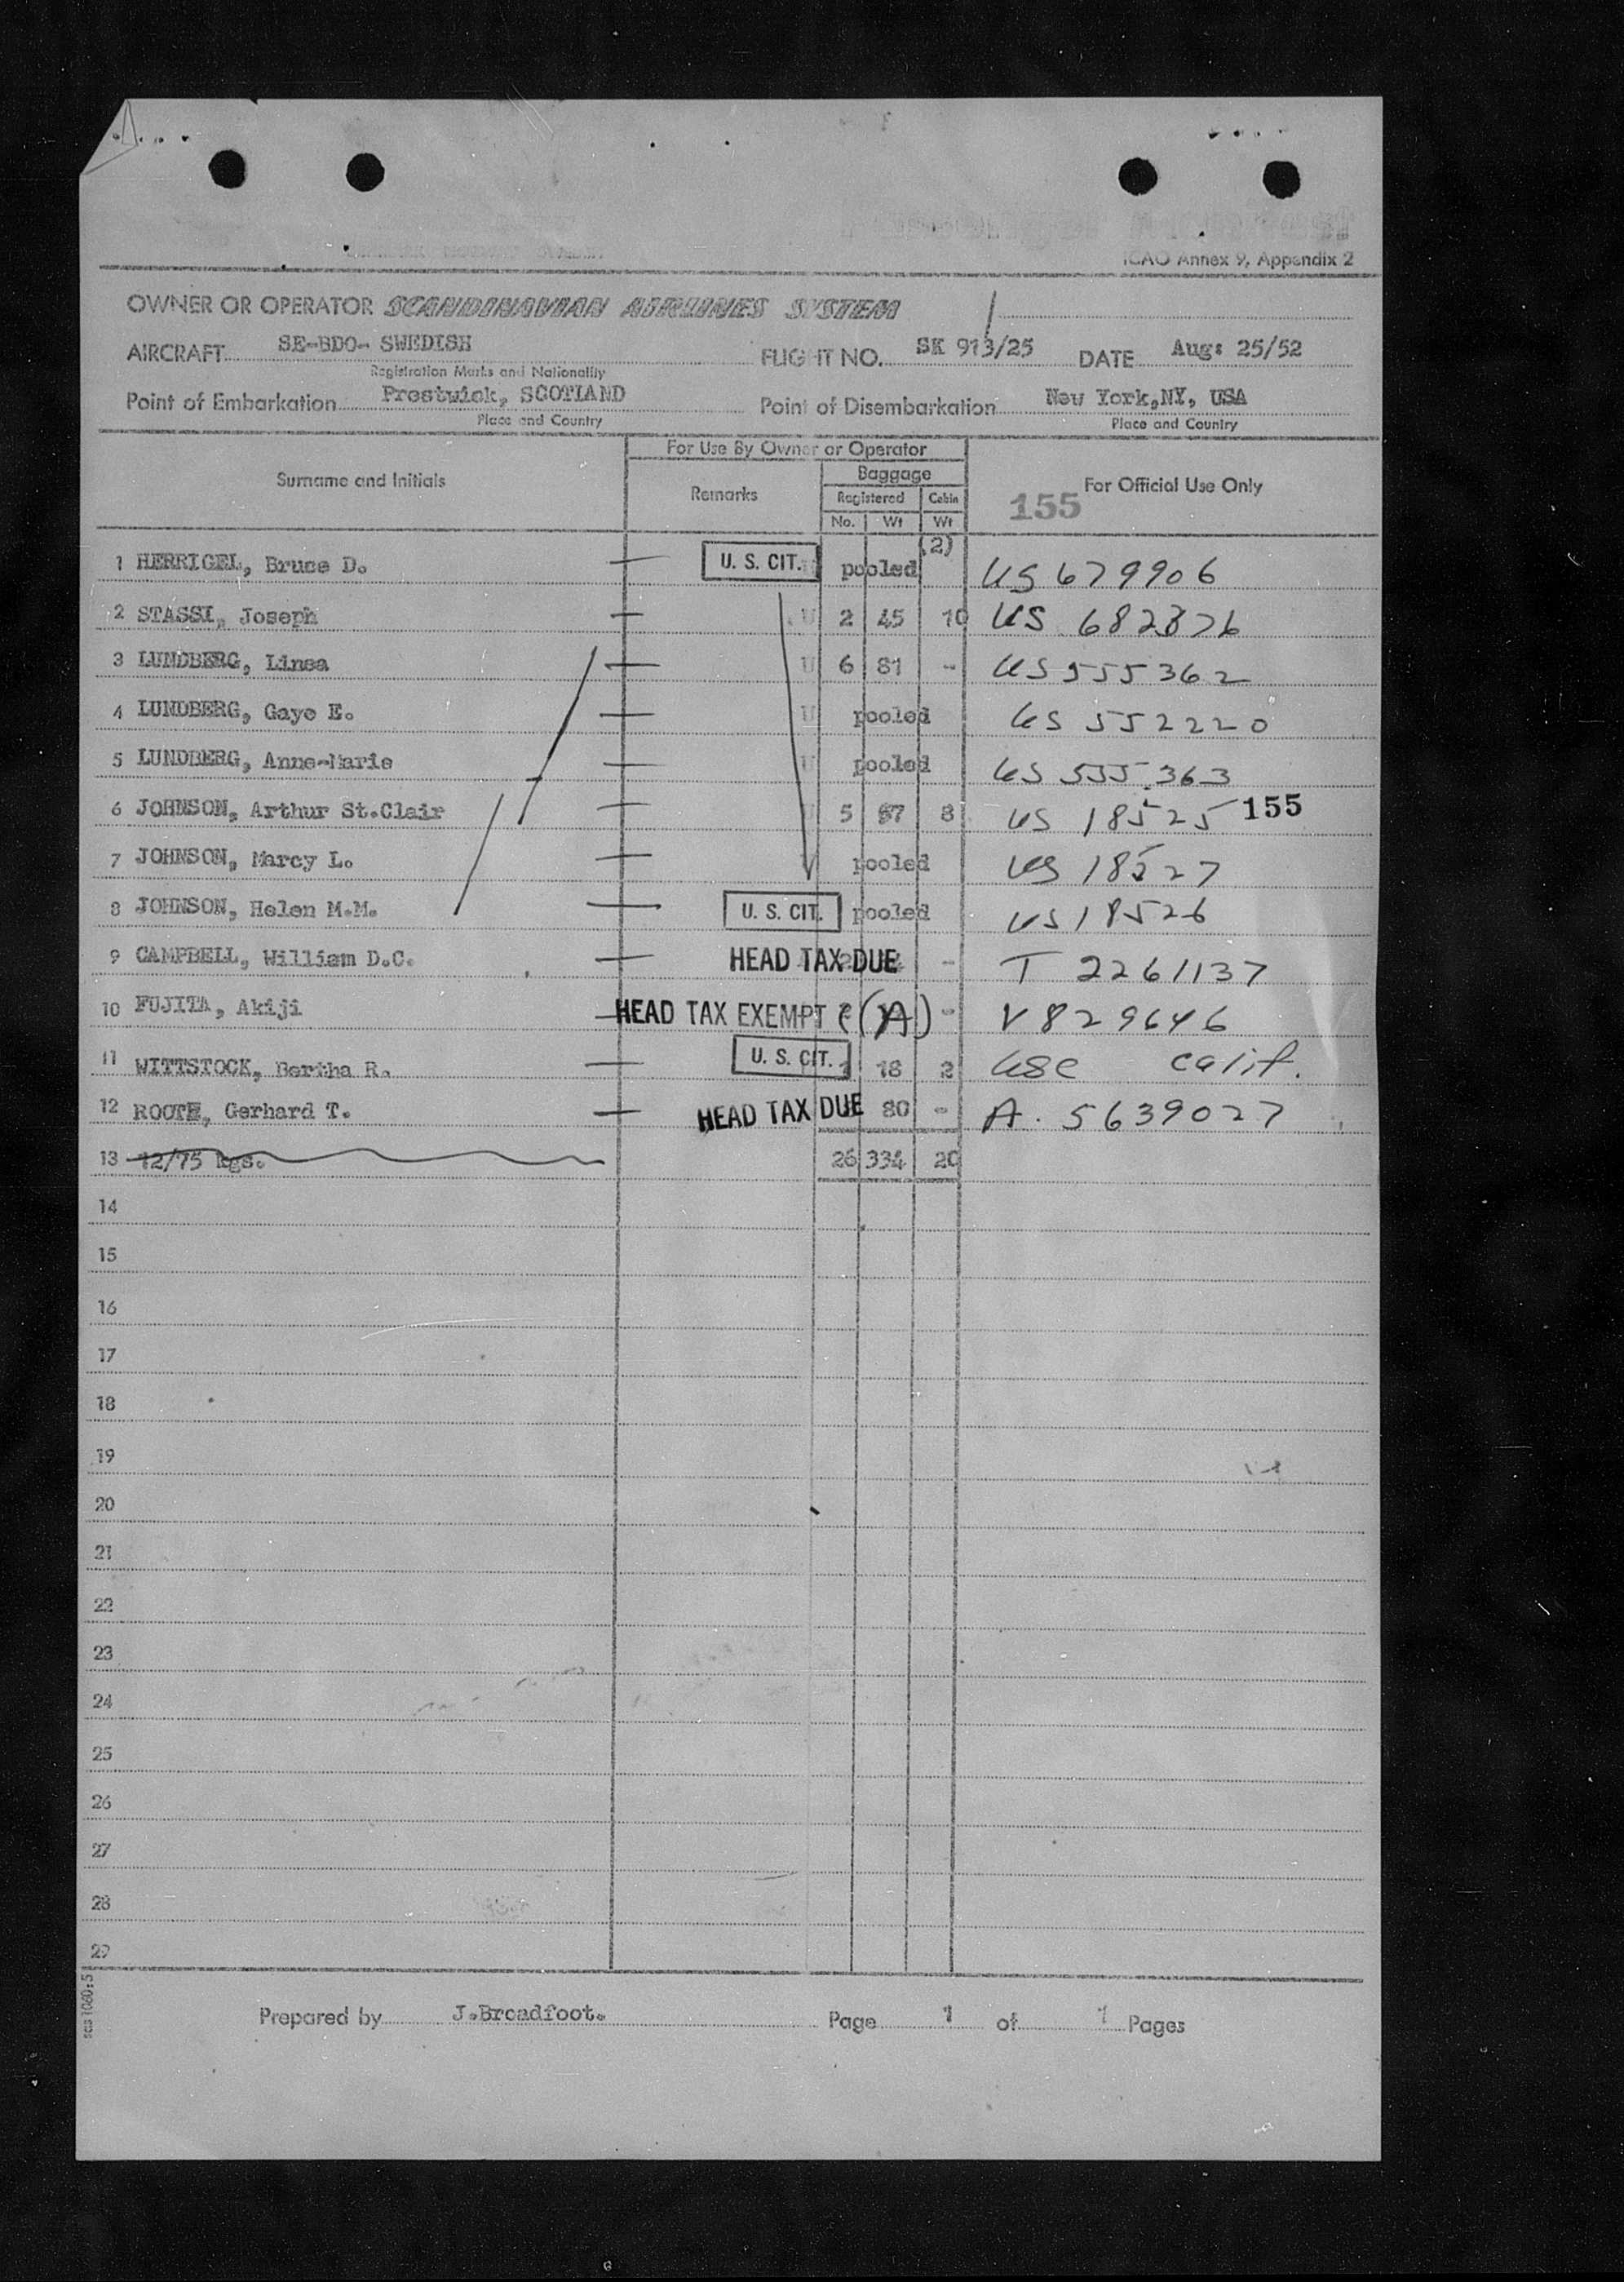 ICAO Annex 9, Appendix 2
OWNER OR OPERATOR SCANDINAVIAN AIRLINES SYSTEM
AIRCRAFT SE-BDO- SWEDISH FLIGHT NO. SK 913/25 DATE Aug: 25/52
Registration Marks and Nationality
Point of Embarkation Prestwick, SCOTLAND Point of Disembarkation New York,NY, USA
Place and Country Place and Country
For Use By Owner or Operator
Surname and Initials Remarks Baggage For Official Use Only
Registered Cabin 155
No. Wt Wt
(2)
1 HERRIGEL, Bruce D. U. S. CIT. pooled US 679906
2 STASSI, Joseph U 2 45 10 US 682876
3 LUNDBERG, Linea U 6 81 - US 555362
4 LUNDBERG, Gaye E. U pooled US 552220
5 LUNDBERG, Anne-Marie U pooled US 555363
6 JOHNSON, Arthur St.Clair U 5 87 8 US 18525 155
7 JOHNSON, Marcy L. pooled US 18527
8 JOHNSON, Helen M.M. U. S. CIT. pooled US 18526
9 CAMPBELL, William D.C. HEAD TAX DUE - T 2261137
10 FUJITA, Akiji HEAD TAX EXEMPT (A) - V 829646
11 WITTSTOCK, Bertha R. U. S. CIT. 1 18 2 USC Calif.
12 ROOTE, Gerhard T. HEAD TAX DUE 80 - A. 5639027
13 12/75 kgs. 26 334 20
14
15
16
17
18
19
20
21
22
23
24
25
26
27
28
29
sas 1060:5
Prepared by J.Broadfoot. Page 1 of 1 Pages